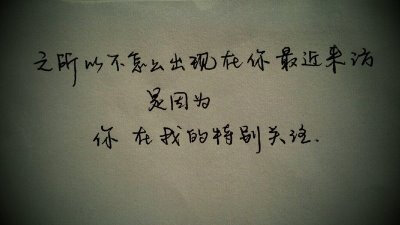 之所以不怎么出现在你最近来访
是因为
你在我的特别关注.